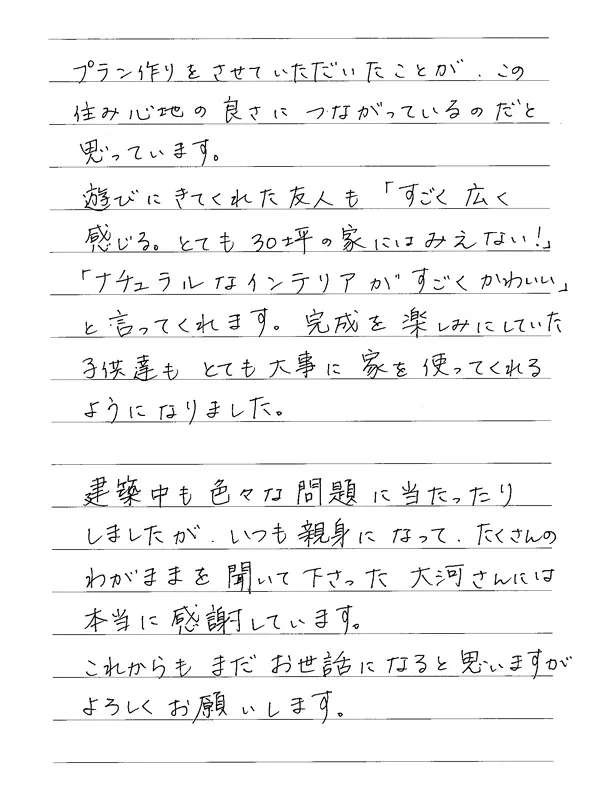 プラン作りをさせていただいたことが、この
住み心地の良さに つながっているのだと
思っています。
遊びにきてくれた友人も「すごく広く
感じる。とても30坪の家にはみえない!」
「ナチュラルなインテリアがすごくかわいい」
と言ってくれます。完成を楽しみにしていた
子供達も とても大事に 家を使ってくれる
ようになりました。
建築中も色々な問題に当たったり
しましたが、いつも親身になって、たくさんの
わがままを聞いて下さった 大河さんには
本当に感謝しています。
これからも まだ お世話になると思いますが
よろしくお願いします。